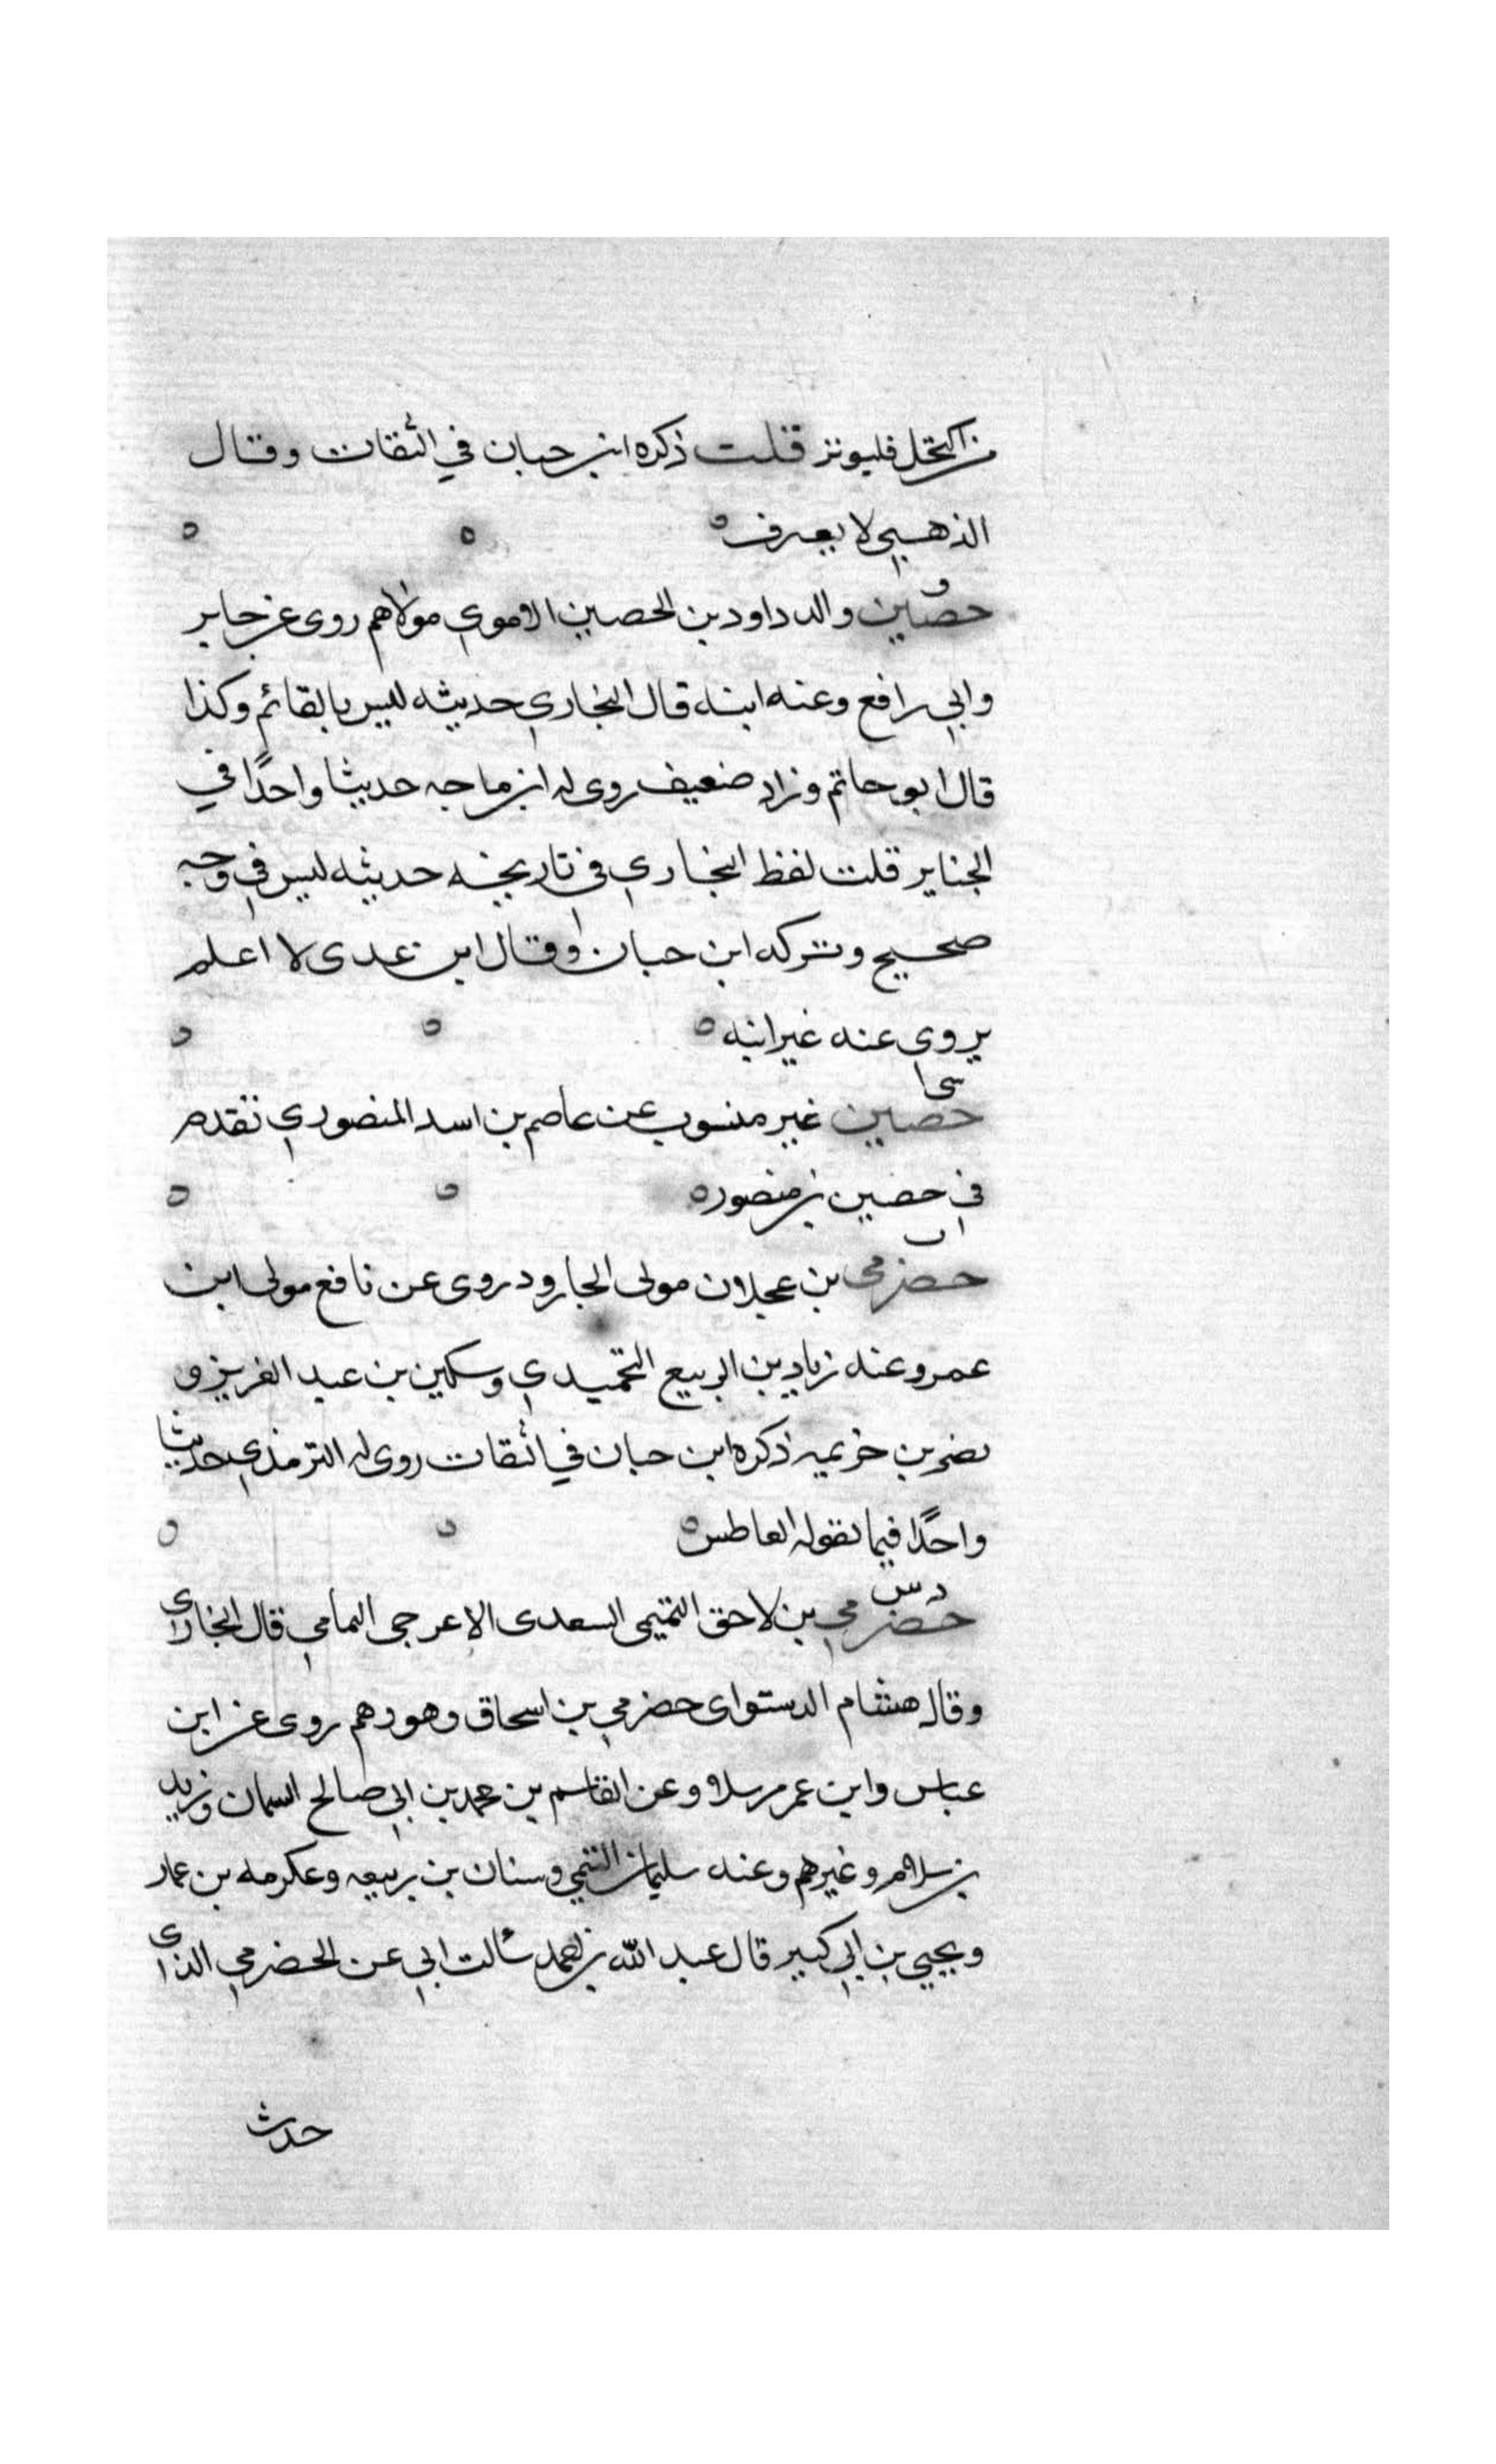 من اكتحل فليوتر قلت ذكره ابن حبان في الثقات وقال
الذهبي لا يعرف ه ه ه
حصين والد داود بن الحصين الاموي مولاهم روى عن جابر
وابي رافع وعنه ابنه قال البخاري حديثه ليس بالقائم وكذا
قال ابو حاتم وزاد ضعيف روى له ابن ماجه حديثا واحدًا في
الجنايز قلت لفظ البخاري في تاريخه حديثه ليس في وجه
صحيح وتركه ابن حبان وقال ابن عدى لا اعلم
يروي عنه غير ابنه ه ه ه
حصين غير منسوب عن عاصم بن اسد المنصوري تقدم
في حضين بن منصور ه ه ه
حضرمى بن عجلان مولى الجارود روى عن نافع مولى ابن
عمر وعنه زياد بن الربيع التحميدي وسكين بن عبد العزيز و
نصر بن خزيمه ذكره ابن حبان في الثقات روى له الترمذي حديثا
واحدًا فيما يقوله العاطس ه ه ه
د س
حضرمي بن لاحق التميمى السعدى الاعرجى اليمامي قال البخارى
وقال هشام الدستواى حضرمي بن اسحاق وهو وهم روى عن ابن
عباس وابن عمر مرسلا وعن القاسم بن محمد بن ابي صالح السمان وزيد
بن سلام وغيرهم وعنه سليمان التيمي وسنان بن ربيعه وعكرمه بن عمار
ويحيي بن ابي كبير قال عبد الله بن احمد سألت ابي عن الحضرمي الذى
حدث